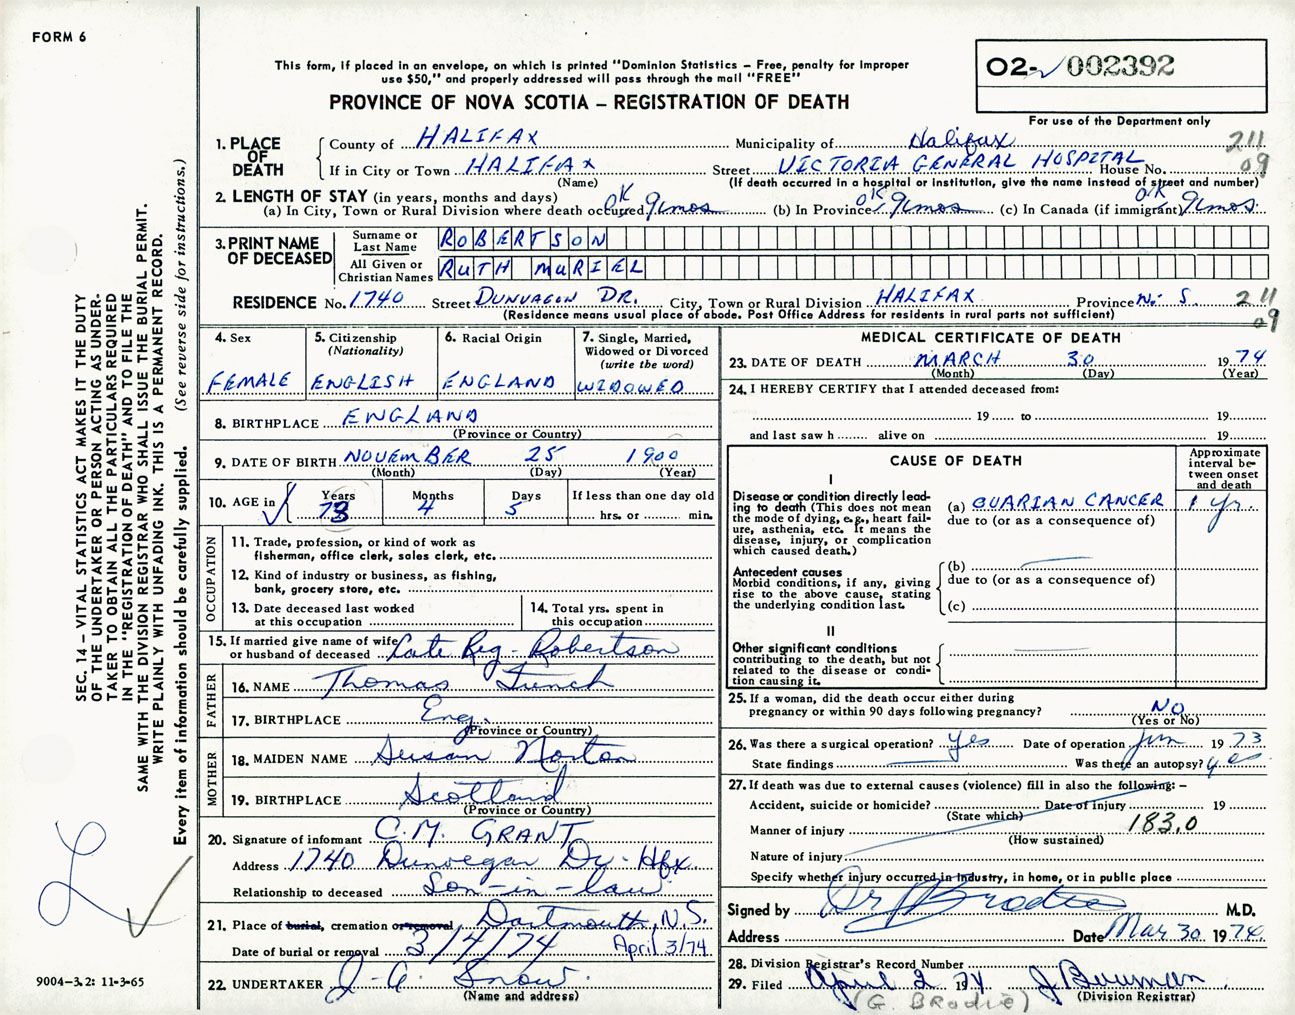 FORM 6
This form, if placed in an envelope, on which is printed "Dominion Statistics – Free, penalty for improper
use $50," and properly addressed will pass through the mail "FREE"
PROVINCE OF NOVA SCOTIA – REGISTRATION OF DEATH
02- 002392
For use of the Department only
SEC. 14 – VITAL STATISTICS ACT MAKES IT THE DUTY
OF THE UNDERTAKER OR PERSON ACTING AS UNDER-
TAKER TO OBTAIN ALL THE PARTICULARS REQUIRED
IN THE "REGISTRATION OF DEATH" AND TO FILE THE
SAME WITH THE DIVISION REGISTRAR WHO SHALL ISSUE THE BURIAL PERMIT.
WRITE PLAINLY WITH UNFADING INK. THIS IS A PERMANENT RECORD.
Every item of information should be carefully supplied. (See reverse side for instructions.)
1. PLACE OF DEATH
County of HALIFAX Municipality of Halifax 211
If in City or Town HALIFAX Street VICTORIA GENERAL HOSPITAL House No. 09
(Name) (If death occurred in a hospital or institution, give the name instead of street and number)
2. LENGTH OF STAY (in years, months and days)
(a) In City, Town or Rural Division where death occurred OK 9 mos (b) In Province OK 9 mos (c) In Canada (if immigrant) OK 9 mos.
3. PRINT NAME OF DECEASED
Surname or Last Name ROBERTSON
All Given or Christian Names RUTH MURIEL
RESIDENCE No. 1740 Street DUNVAGEN DR. City, Town or Rural Division HALIFAX Province N. S. 211
(Residence means usual place of abode. Post Office Address for residents in rural parts not sufficient) 09
4. Sex
FEMALE
5. Citizenship
(Nationality)
ENGLISH
6. Racial Origin
ENGLAND
7. Single, Married,
Widowed or Divorced
(write the word)
WIDOWED
8. BIRTHPLACE ENGLAND
(Province or Country)
9. DATE OF BIRTH NOVEMBER 25 1900
(Month) (Day) (Year)
10. AGE in
Years Months Days If less than one day old
73 4 5 hrs. or min.
OCCUPATION
11. Trade, profession, or kind of work as
fisherman, office clerk, sales clerk, etc.
12. Kind of industry or business, as fishing,
bank, grocery store, etc.
13. Date deceased last worked
at this occupation
14. Total yrs. spent in
this occupation
15. If married give name of wife
or husband of deceased Late Reg. Robertson
FATHER
16. NAME Thomas
17. BIRTHPLACE Eng.
(Province or Country)
MOTHER
18. MAIDEN NAME Susan Norton
19. BIRTHPLACE Scotland
(Province or Country)
20. Signature of informant C. M. GRANT
Address 1740 Dunvegan Dr. Hfx
Relationship to deceased Son-in-law
21. Place of burial, cremation or removal Dartmouth, N.S.
Date of burial or removal 3/4/74 April 3/74
22. UNDERTAKER J. A. Snow.
(Name and address)
MEDICAL CERTIFICATE OF DEATH
23. DATE OF DEATH MARCH 30 1974
(Month) (Day) (Year)
24. I HEREBY CERTIFY that I attended deceased from:
19 to 19
and last saw h alive on 19
CAUSE OF DEATH
Approximate
interval be-
tween onset
and death
I
Disease or condition directly lead-
ing to death (This does not mean
the mode of dying, e.g., heart fail-
ure, asthenia, etc. It means the
disease, injury, or complication
which caused death.)
(a) OVARIAN CANCER 1 yr.
due to (or as a consequence of)
Antecedent causes
Morbid conditions, if any, giving
rise to the above cause, stating
the underlying condition last.
(b)
due to (or as a consequence of)
(c)
II
Other significant conditions
contributing to the death, but not
related to the disease or condi-
tion causing it.
25. If a woman, did the death occur either during
pregnancy or within 90 days following pregnancy? NO
(Yes or No)
26. Was there a surgical operation? yes Date of operation 1973
State findings Was there an autopsy? yes
27. If death was due to external causes (violence) fill in also the following: –
Accident, suicide or homicide? Date of injury 19
(State which)
Manner of injury 183.0
(How sustained)
Nature of injury
Specify whether injury occurred in industry, in home, or in public place
Signed by Dr Brodie M.D.
Address Date Mar 30 1974
28. Division Registrar's Record Number
29. Filed April 2 1974 J. Bowman
(G. BRODIE) (Division Registrar)
9004–3.2: 11-3-65